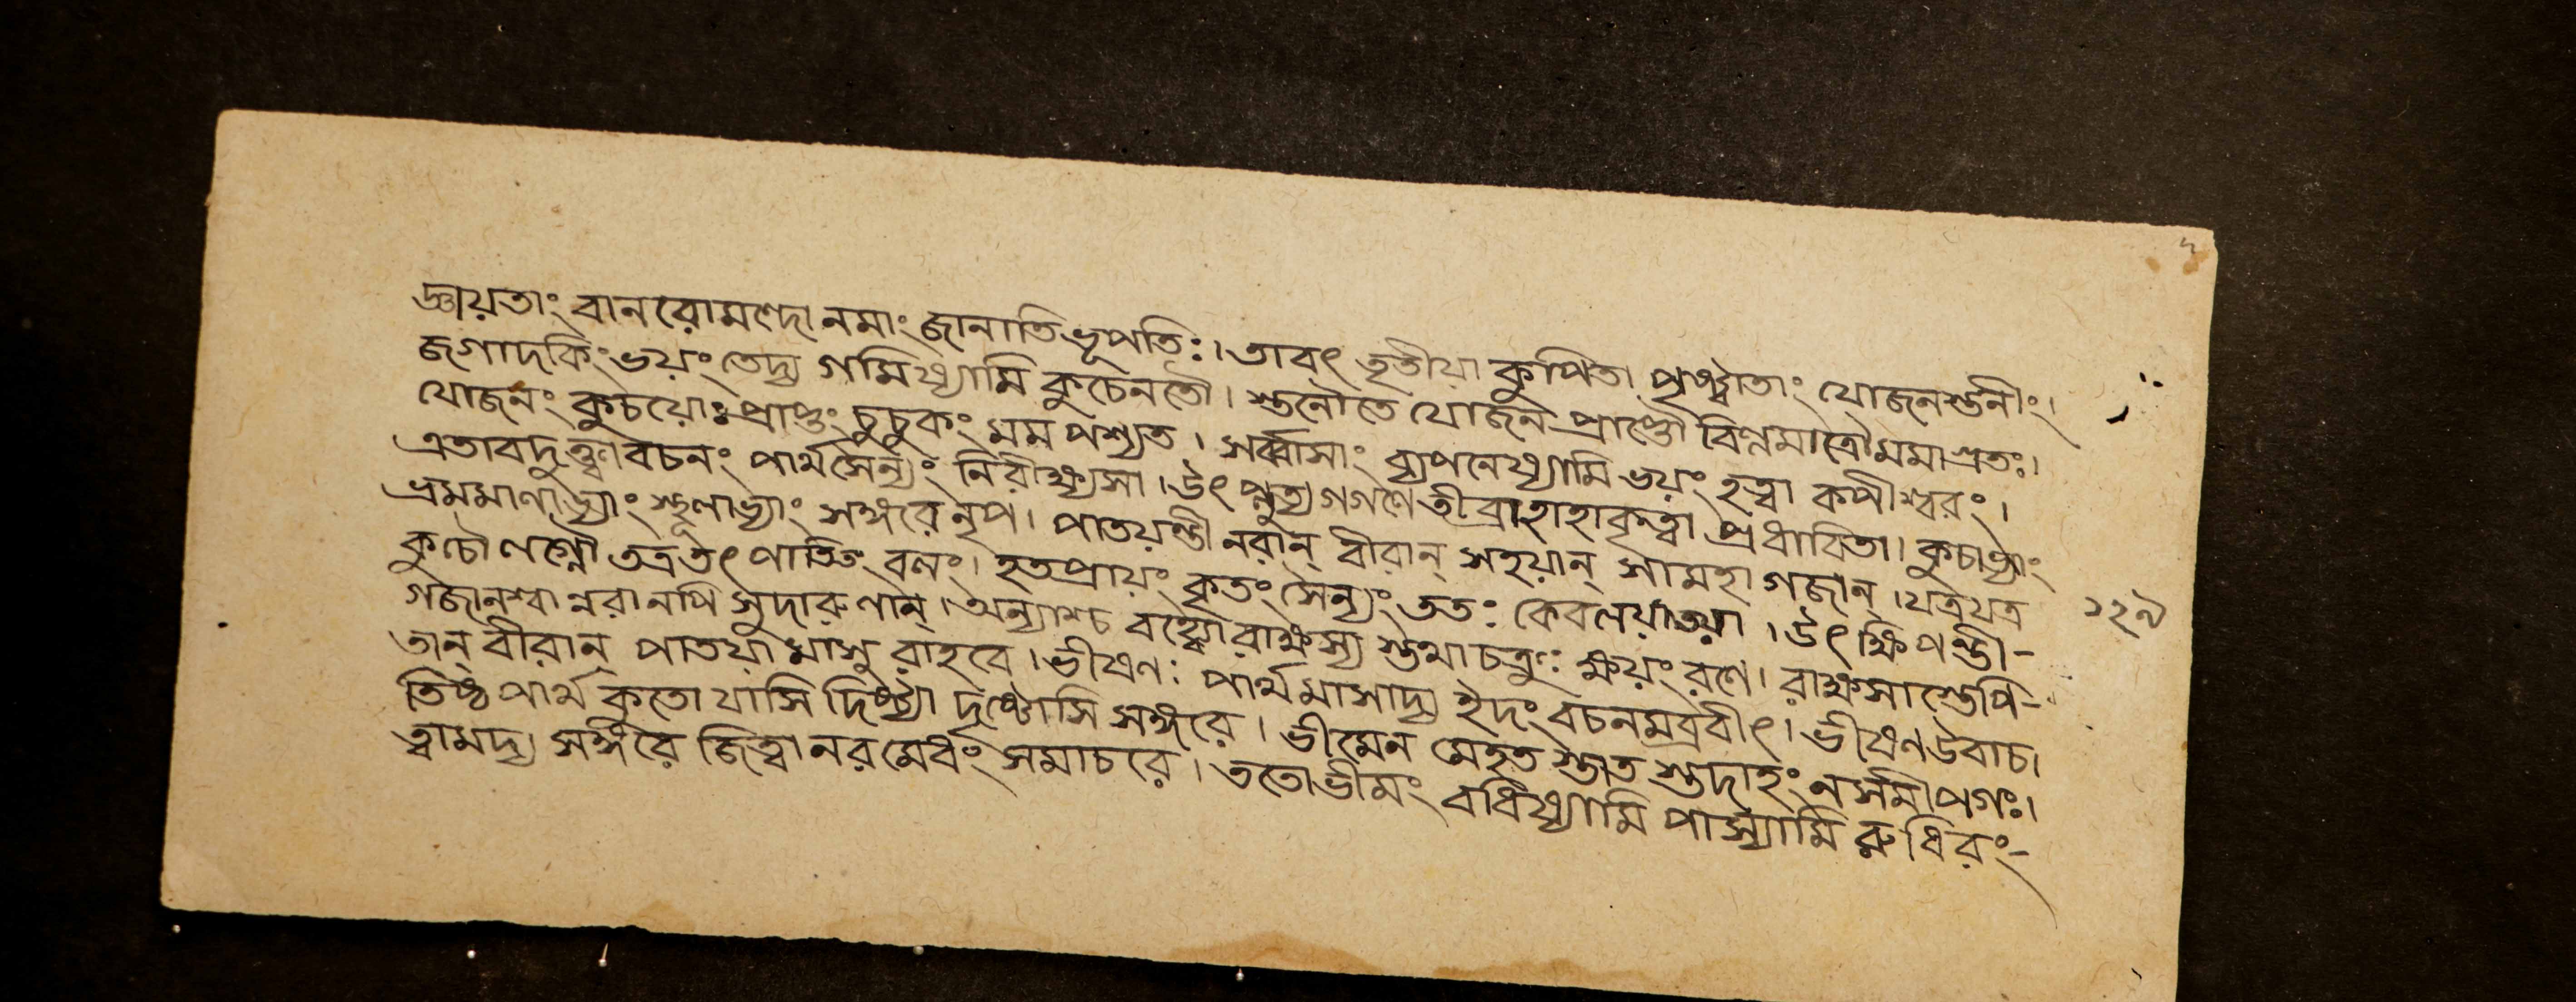 জ্ঞায়তাং বানরোমণ্দো নমাং জানাতি ভূপতিঃ। তাবৎ তৃতীয়া কুপিতা প্রাহ তাং যোজনস্তনীং।
জগাদ কিং ভয়ং তেদ্য গমিষ্যামি কুচেনতৌ। স্তনৌতে যোজন প্রাপ্তৌ বিল্বমাত্রৌ মমাগ্রতঃ।
যোজনং কুচয়োঃ প্রাপ্তং চুচুকং মম পশ্যত। সর্ব্বাসাং ব্যপনেষ্যামি ভয়ং হত্বা কপীশ্বরং।
এতাবদুক্ত্বা বচনং পার্থসৈন্যং নিরীক্ষ্যসা। উৎপ্লুত্য গগণে তীব্রা হাহাকৃত্বা প্রধাবিতা। কুচাভ্যাং
ভ্রমমাণাভ্যাং স্থূলাভ্যাং সঙ্গরে নৃপ। পাতয়ন্তী নরান্ বীরান্ সহয়ান্ সামহা গজান্। যত্রযত্র
কুচৌ লগ্নৌ তত্রতৎ পাতিতং বলং। হতপ্রায়ং কৃতং সৈন্যং ততঃ কেবলয়াতয়া। উৎক্ষিপন্তী-
গজানশ্বান্নরানপি সুদারুণান্। অন্যাশ্চ বহ্ব্যো রাক্ষস্য স্তথাচক্রুঃ ক্ষয়ং রণে। রাক্ষসাস্তেপি-
তান্ বীরান্ পাতয়ামাসু রাহবে। ভীষণঃ পার্থমাসাদ্য ইদং বচনমব্রবীৎ। ভীষণউবাচ।
তিষ্ঠ পার্থ কুতো যাসি দিষ্ট্যা দৃষ্টোসি সঙ্গরে। ভীমেন মেহত স্তাত স্তদাহং নসমীপগঃ।
ত্বামদ্য সঙ্গরে জিত্বা নরমেধং সমাচরে। ততোভীমং বধিষ্যামি পাস্যামি রুধিরং-
১২৯